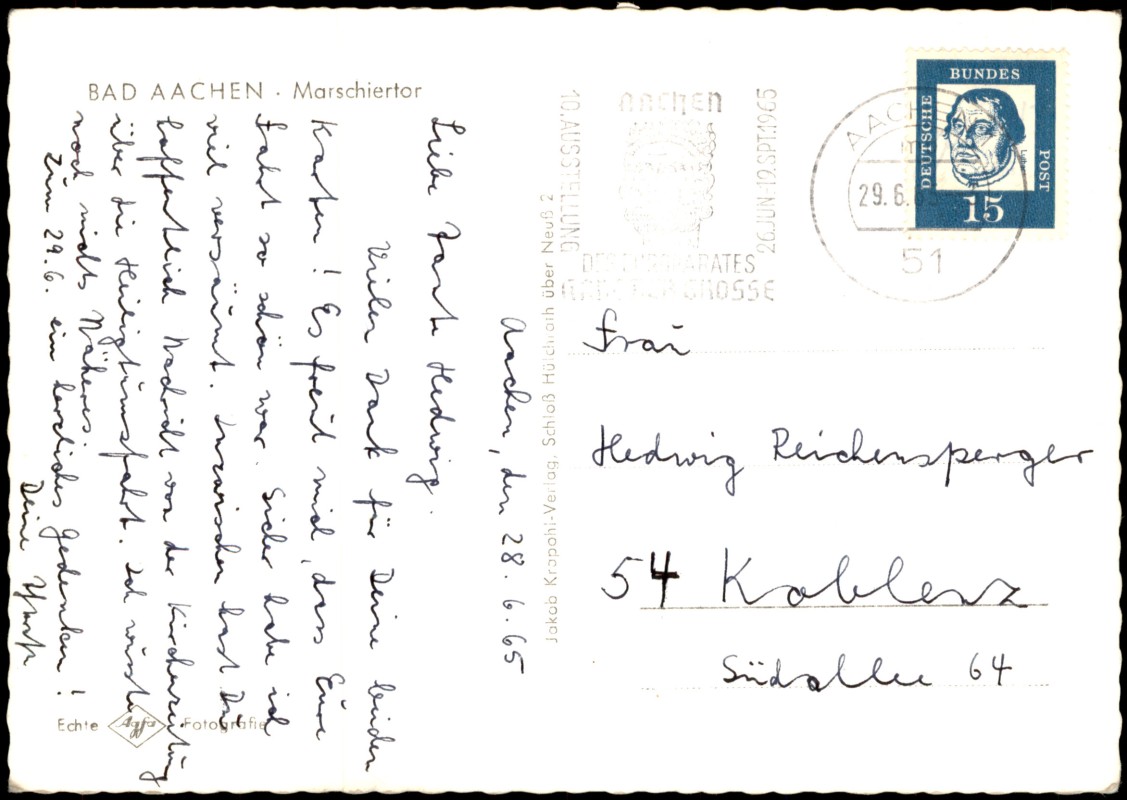 BAD AACHEN · Marschiertor
Aachen, den 28. 6. 65
Liebe Tante Hedwig.
Vielen Dank für Deine beiden
Karten! Es freut mich, dass Eure
Fahrt so schön war. Sicher habe ich
viel versäumt. Inzwischen hast Du
hoffentlich Nachricht von der Kirchenzeitung
über die Heiligtumsfahrt. Ich wusste
noch nichts Näheres.
Zum 29. 6. ein herzliches Gedenken!
Deine
Echte Agfa Fotografie
Jakob Krapohl-Verlag, Schloß Hülchrath über Neuß 2
AACHEN
10. AUSSTELLUNG
26. JUN-12. SPT. 1965
DES EUROPARATES
KARL DER GROSSE
AACHEN
29. 6. 65
51
DEUTSCHE
BUNDES
POST
15
Frau
Hedwig Reichensperger
54 Koblenz
Südallee 64